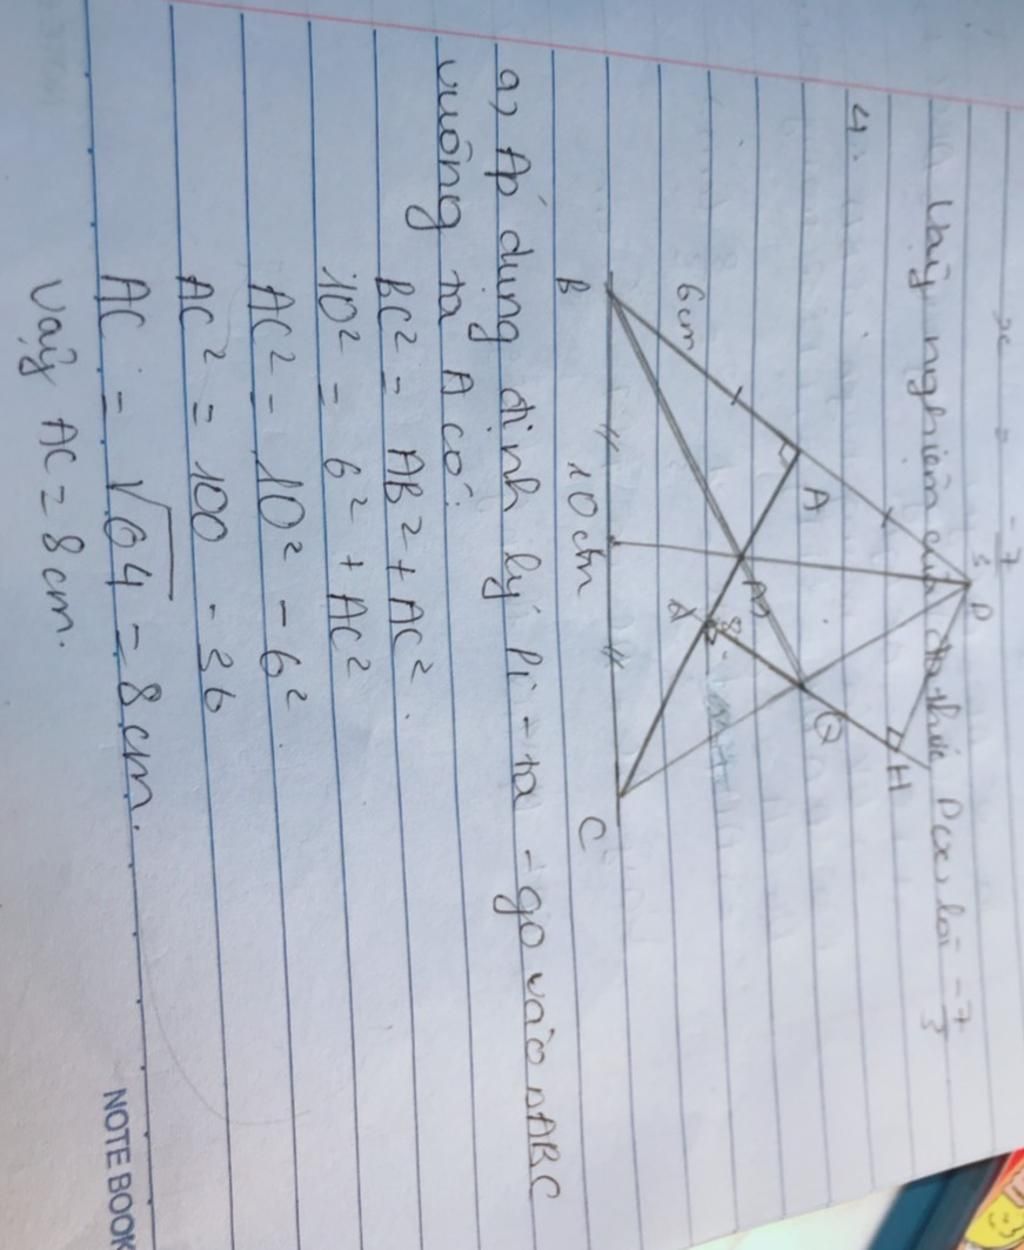 x = -7/3
Vậy nghiệm của đa thức P(x) là -7/3
4.
D
H
A
Q
6cm
M
B
10cm
C
a) Áp dụng định lý Pi-ta-go vào △ABC
vuông tại A có:
BC² = AB² + AC².
10² = 6² + AC²
AC² = 10² - 6²
AC² = 100 - 36
AC = √64 = 8cm.
Vậy AC = 8cm.
NOTE BOOK